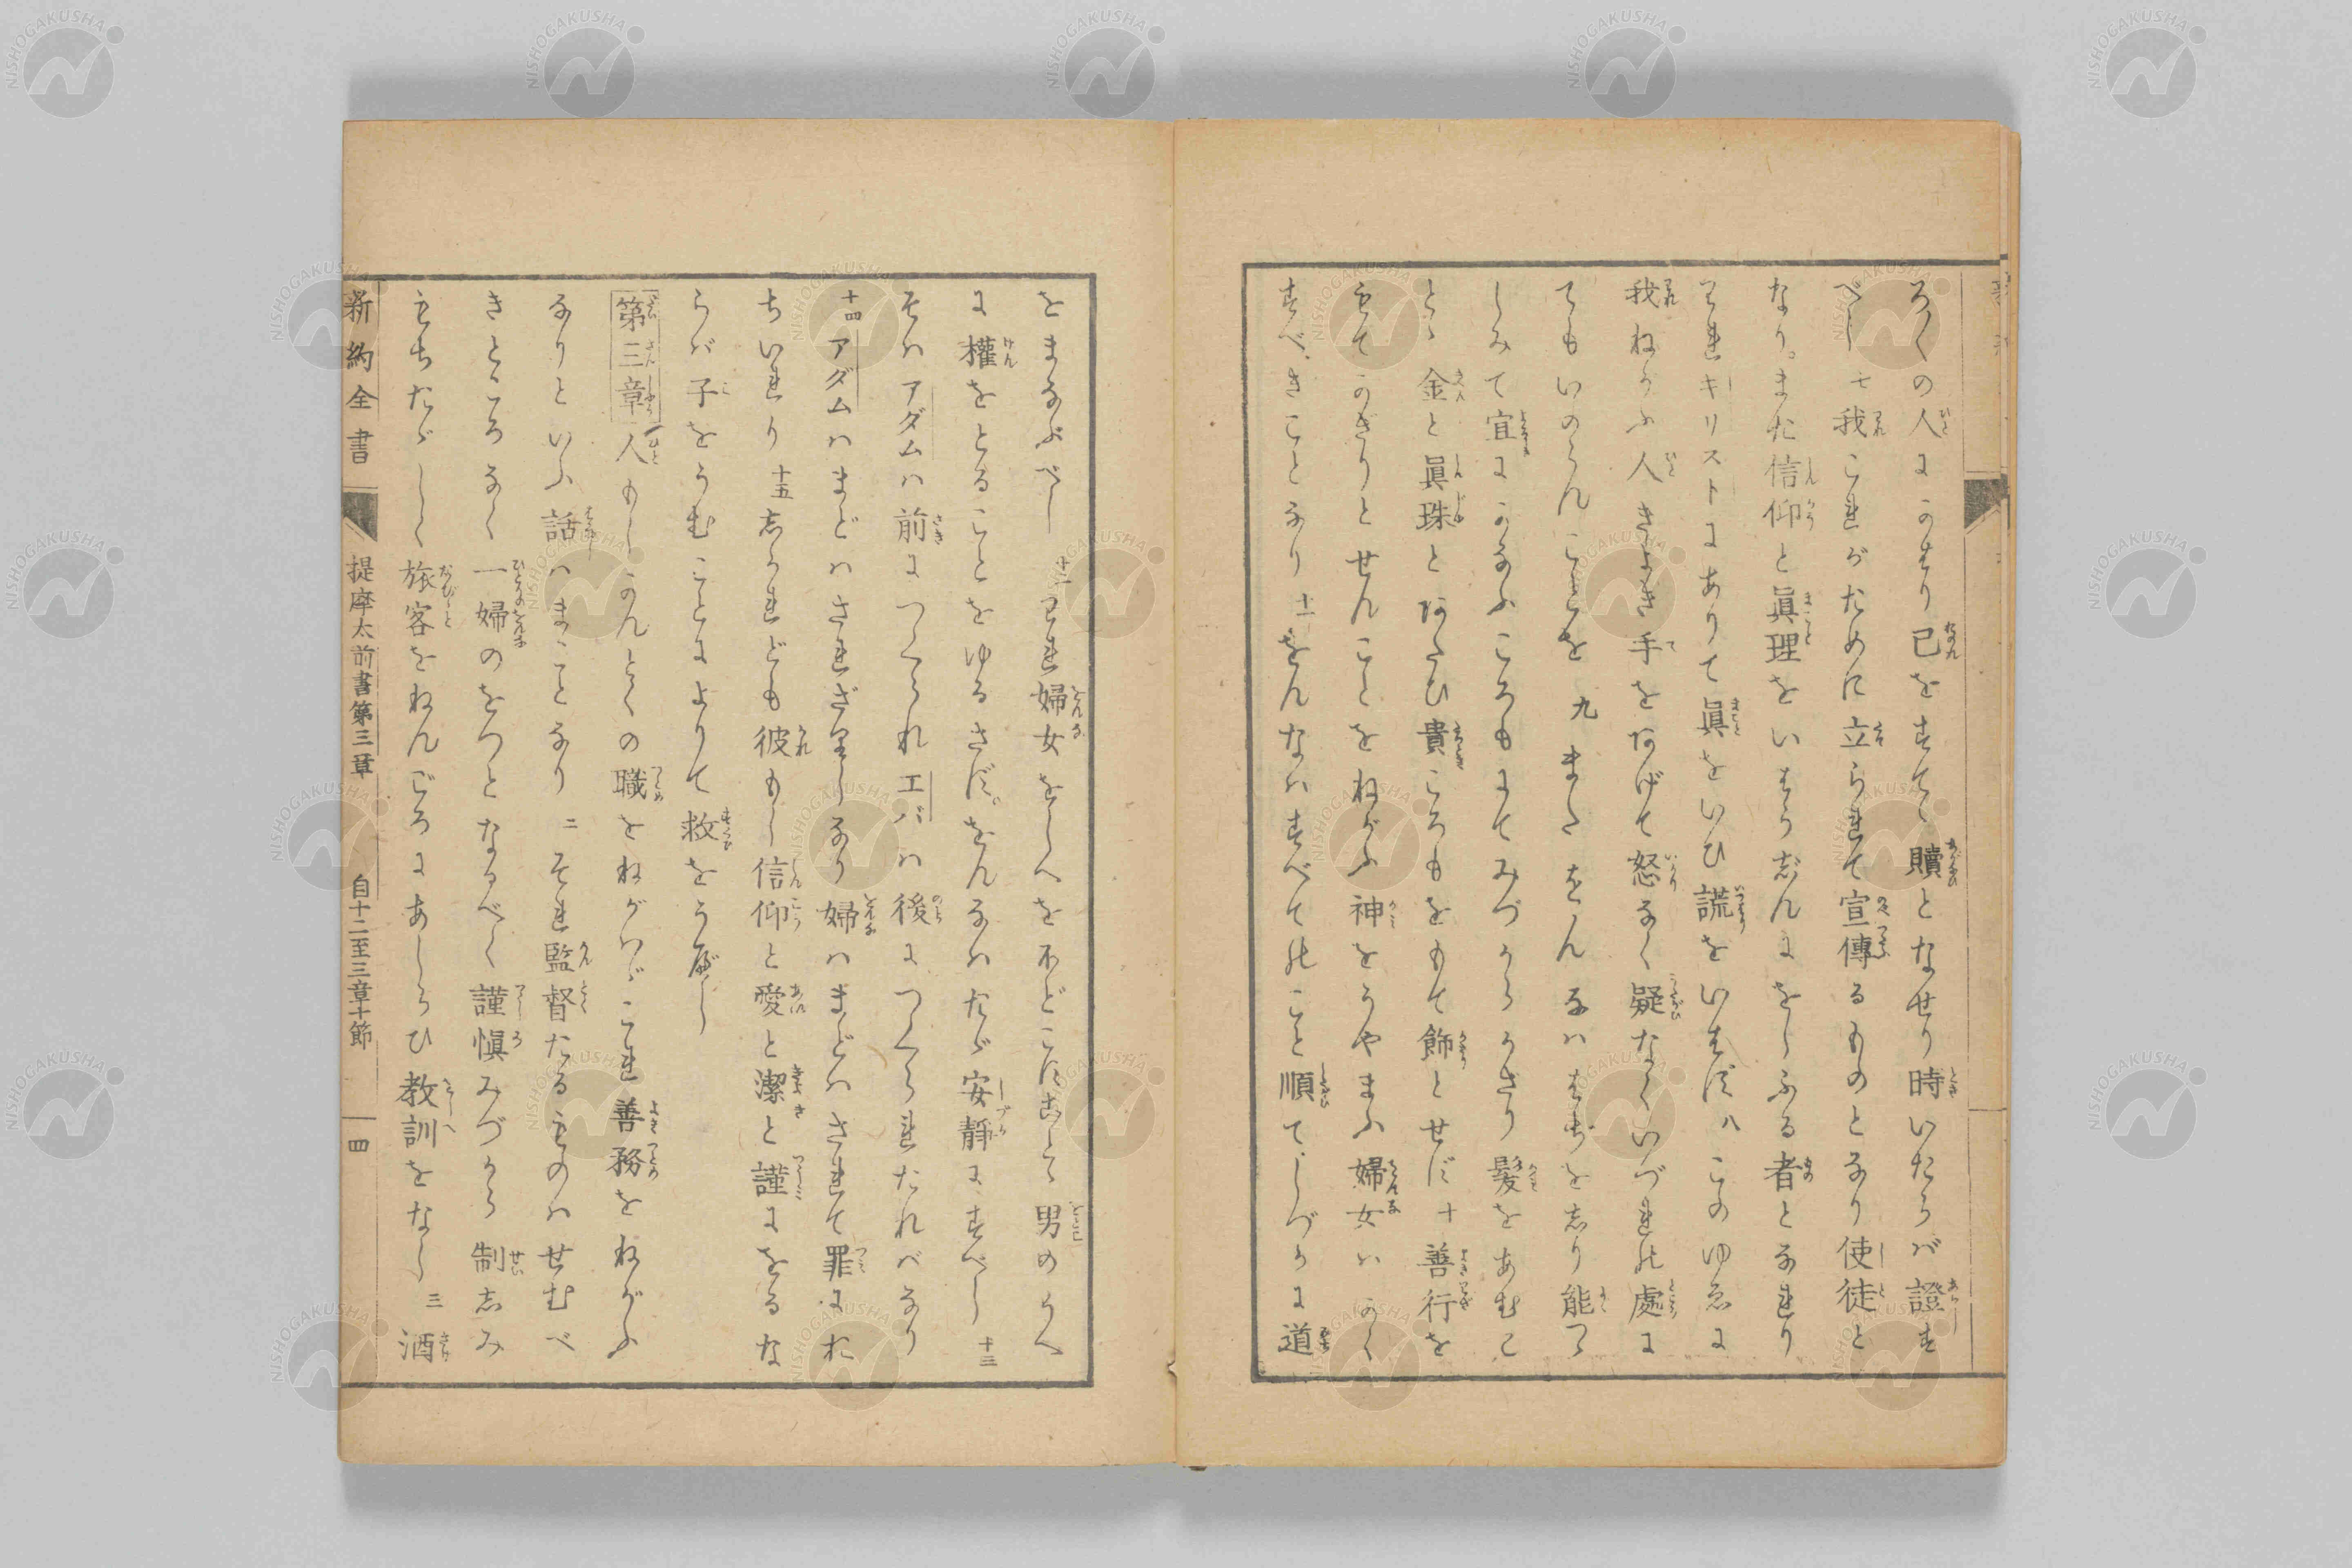 ろくの人にかはり己をすてゝ贖となせり時いたらバ證す
べし七我これがために立られて宣傳るものとなり使徒と
なり。また信仰と眞理をいはうじんにをしふる者となれり
われキリストにありて眞をいひ謊をいはず八このゆゑに
我ねがふ人きよき手をあげて怒なく疑なくいづれの處に
てもいのらんことを九またをんなハはぢをしり能つゝ
しみて宜にかなふころもにてみづからかざり髪をあむこ
とゝ金と眞珠とあたひ貴ころもをもて飾とせず十善行を
もてかざりとせんことをねがふ神をうやまふ婦女ハかく
すべきことなり十一をんなハすべてのこと順てしづかに道
をまなぶべし十二われ婦女をしへをほどこしまた男のうへ
に權をとることをゆるさず。をんなハたゞ安靜にすべし十三
そハアダムハ前につくられエバハ後につくられたれバなり
十四アダムハまどハされざりしなり婦ハまどハされて罪にお
ちいれり十五しかれども彼もし信仰と愛と潔と謹にをるな
らバ子をうむことによりて救をうべし
第三章人もしかんとくの職をねがハゞこれ善務をねがふ
なりといふ話ハまことなり二それ監督たるものハせむべ
きところなく一婦のをつとなるべく謹愼みづから制しみ
もちたゞしく旅客をねんごろにあしらひ教訓をなし三酒
新約全書 提摩太前書第三章 自十二至三章十節 四